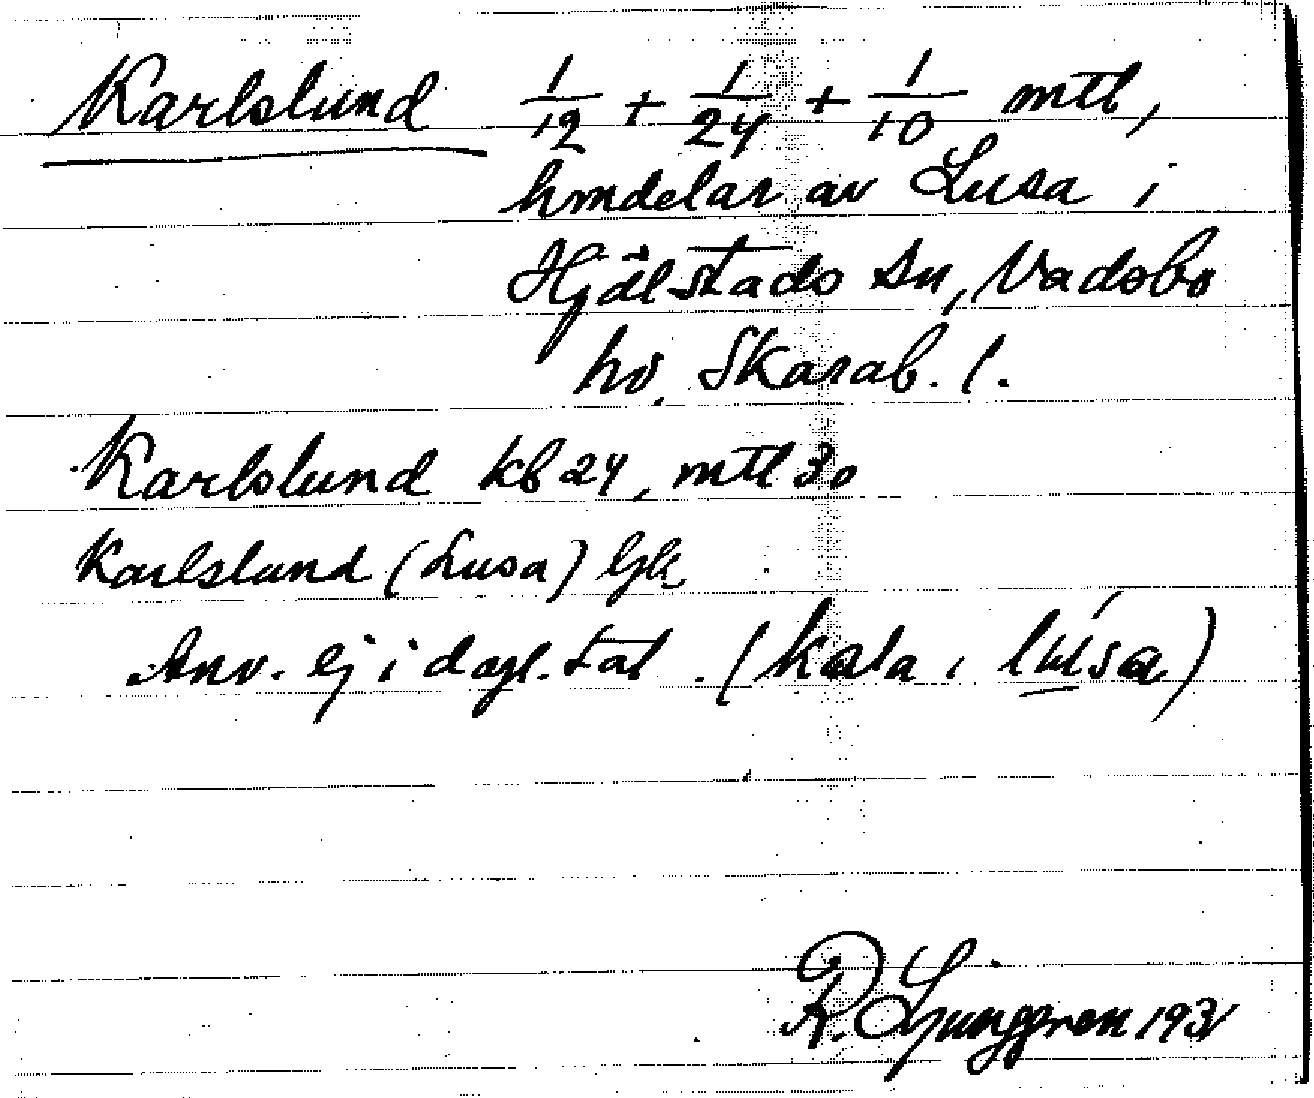 Karlslund 1/12 + 1/24 + 1/10 mtl,
hmdelar av Lusa i
Hjälstads sn, Vadsbo
hd. Skarab. l.
Karlslund kb 24, mtl 30
Karlslund (Lusa) Gk
Anv. ej i dagl. tal. (kala i lusa)
R. Ljunggren 193